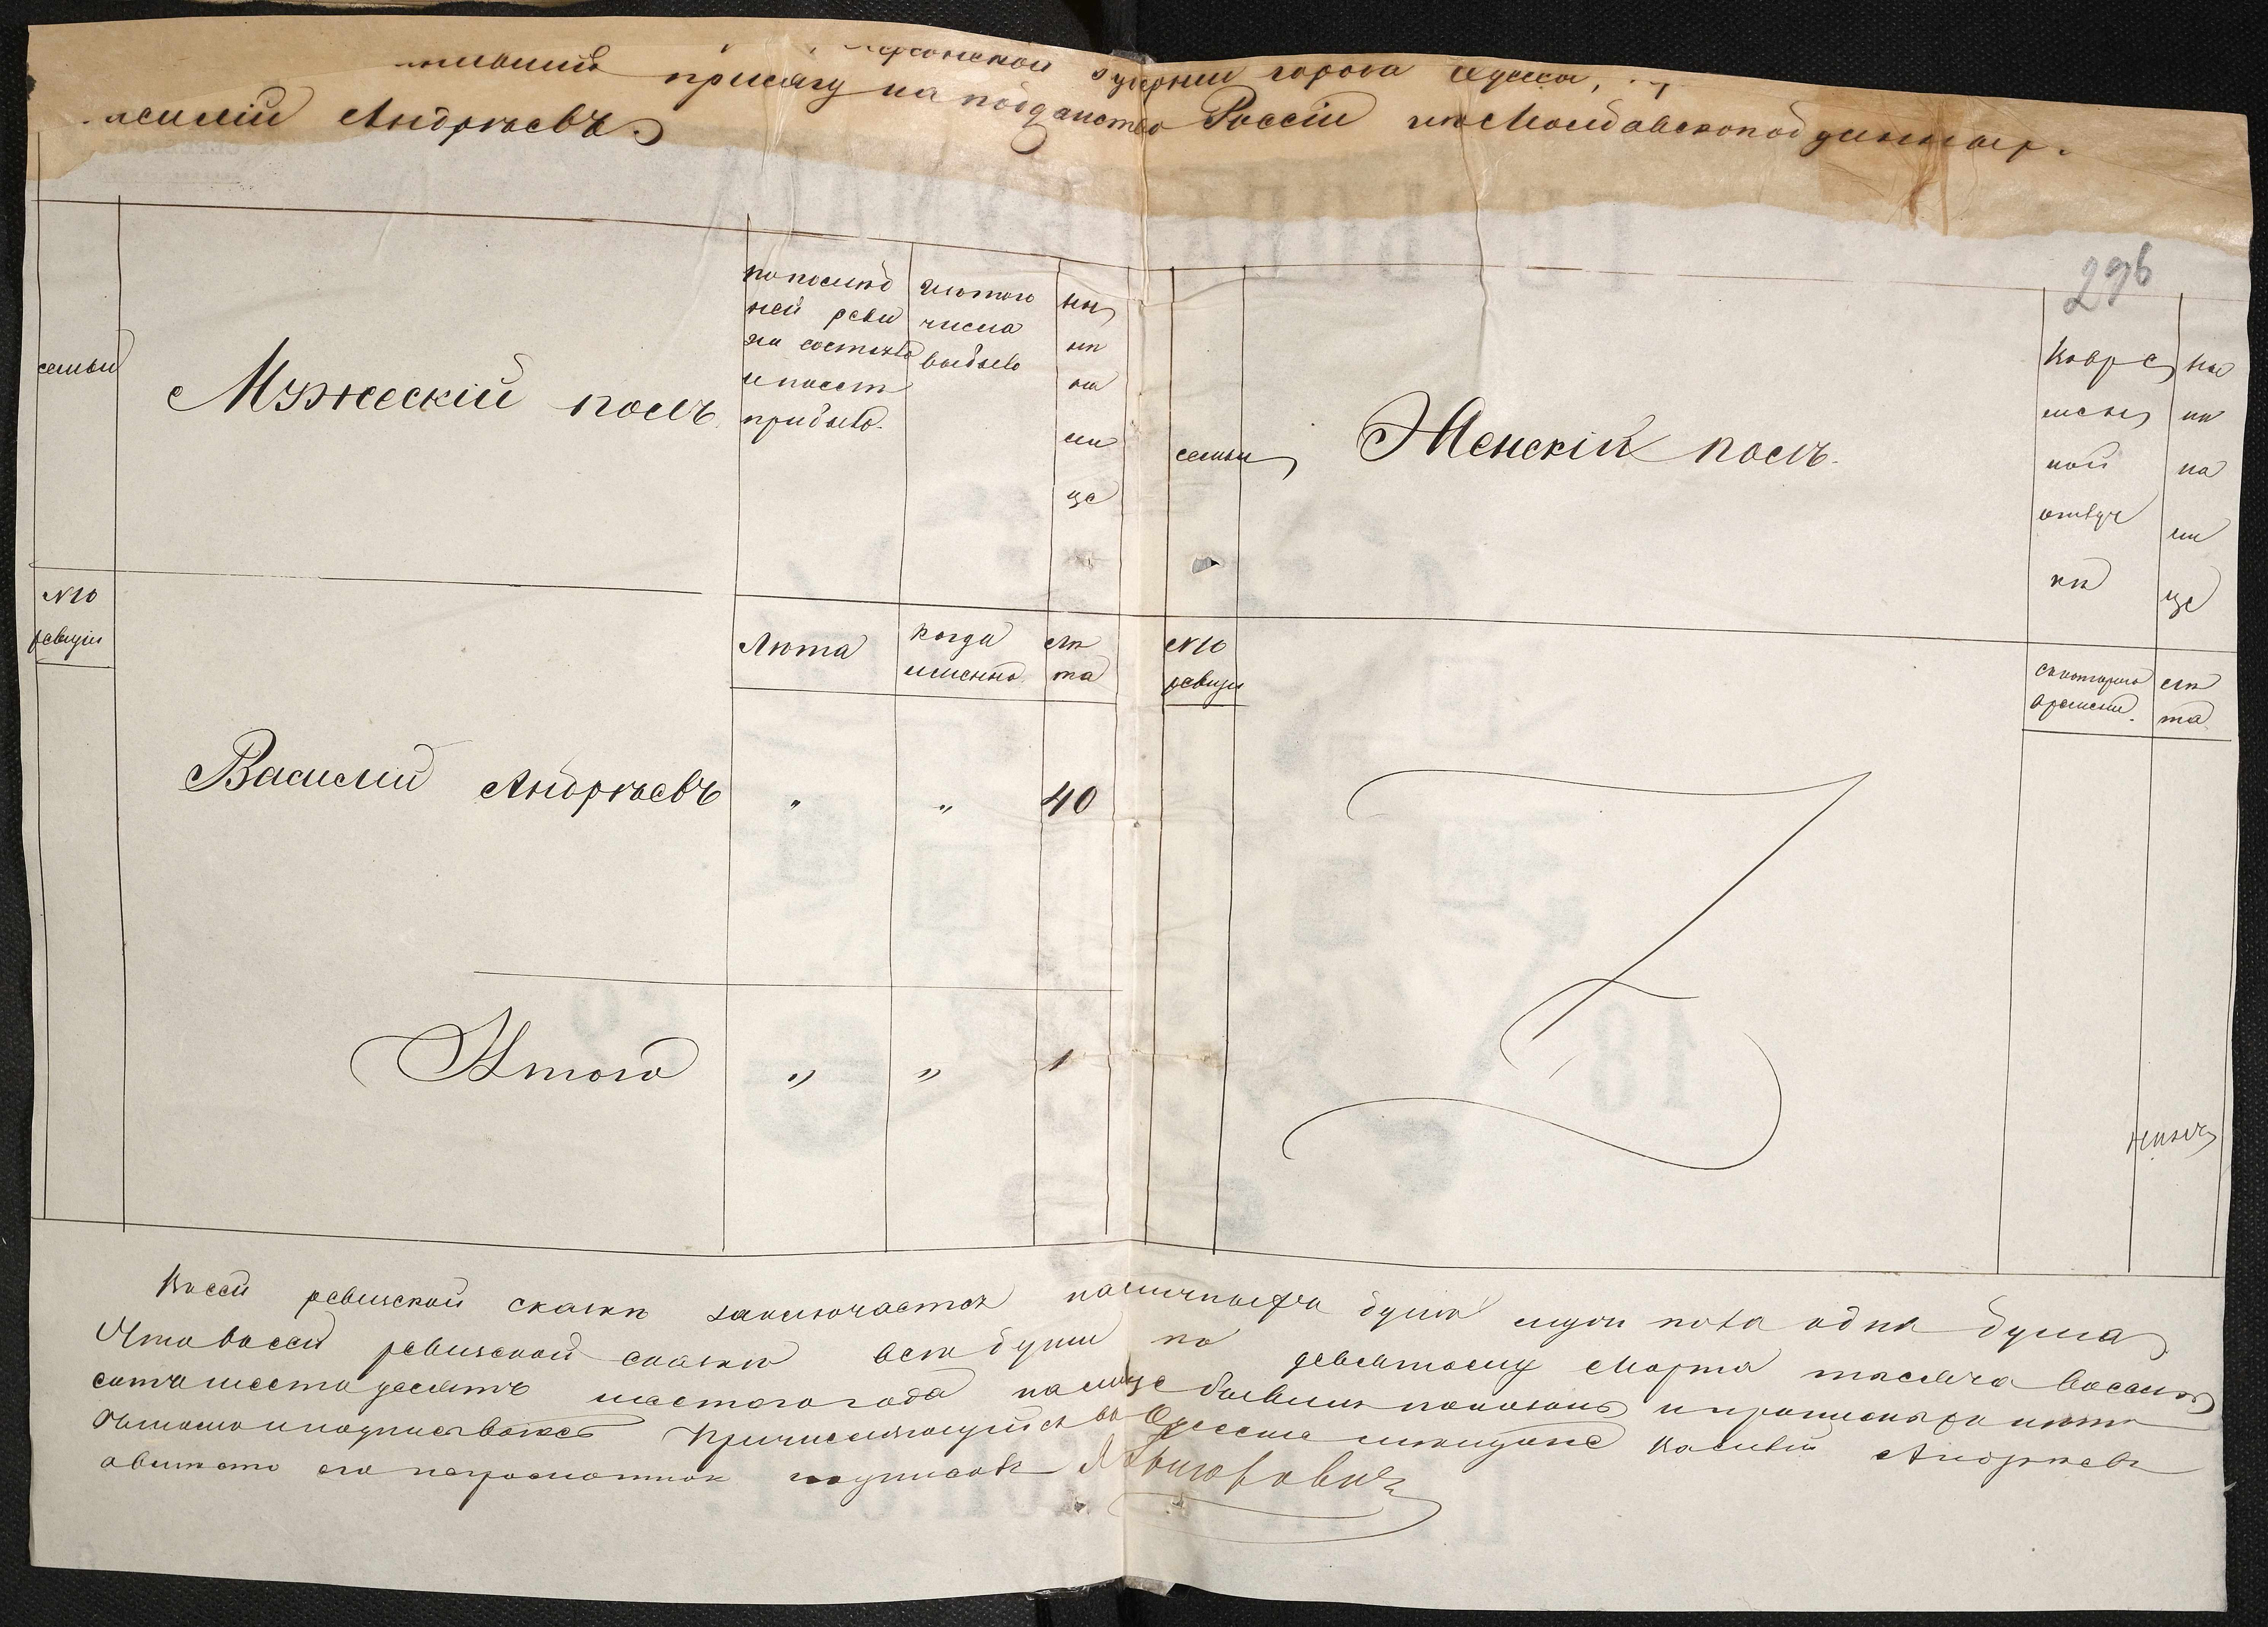 Херсонской губернии города Одессы,
присягу на подданство Россіи изъ Молдавскоподданныхъ
асилій Андрѣевъ
296
семьи
Мужескій полъ
по послѣд
ней реви
зіи состояло
и послѣ
прибыло.
изъ того
числа
выбыло
ны
нѣ
на
ли
це
семьи
Женскій полъ.
во вре
менн
ной
отлуч
кѣ
ны
нѣ
на
ли
це
№10
ревизіи
Лѣта
когда
именно
лѣ
та
№10
ревизіи
съ котораго
времени.
лѣ
та
Василій Андрѣевъ " " 40
Итого " " 1
Въ сей ревизской сказкѣ заключается наличныхъ душъ мужеск пола одна душа
Что въ сей ревизской сказкѣ всѣ души по девятое Марта тысяча восемь
сотъ шестьдесятъ шестаго года на лице бывшія показаны и прописныхъ нѣтъ
въ томъ и подписываюсь Причисляющійся въ Одесскіе мѣщане Василій Андрѣевъ
а вмѣсто его неграмотнаго подписалъ